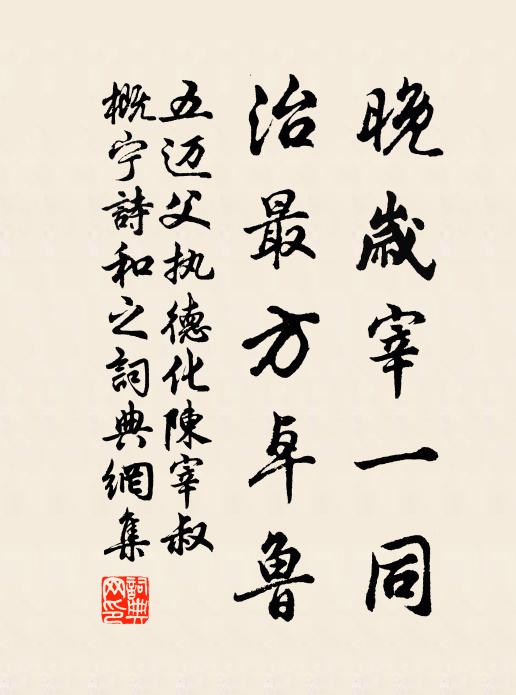 晚歲宰一同
治最方卓魯
五迈父执德化陳宰叔
概宁詩和之詞典網集
詞典網印